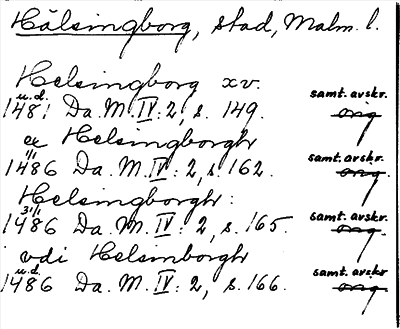 Hälsingborg, stad, Malm. l.
Helsingborg xv.
samt. avskr.
u.d.
1481 Da. M. IV: 2, s. 149. orig
ex Helsingborgh
1/1 samt. avskr.
1486 Da. M. IV: 2, s. 162. orig.
Helsingborgh:
31/1 samt. avskr.
1486 Da. M. IV: 2, s. 165. orig.
vdi Helsimborgh
u.d. samt. avskr
1486 Da. M. IV: 2, s. 166. orig.